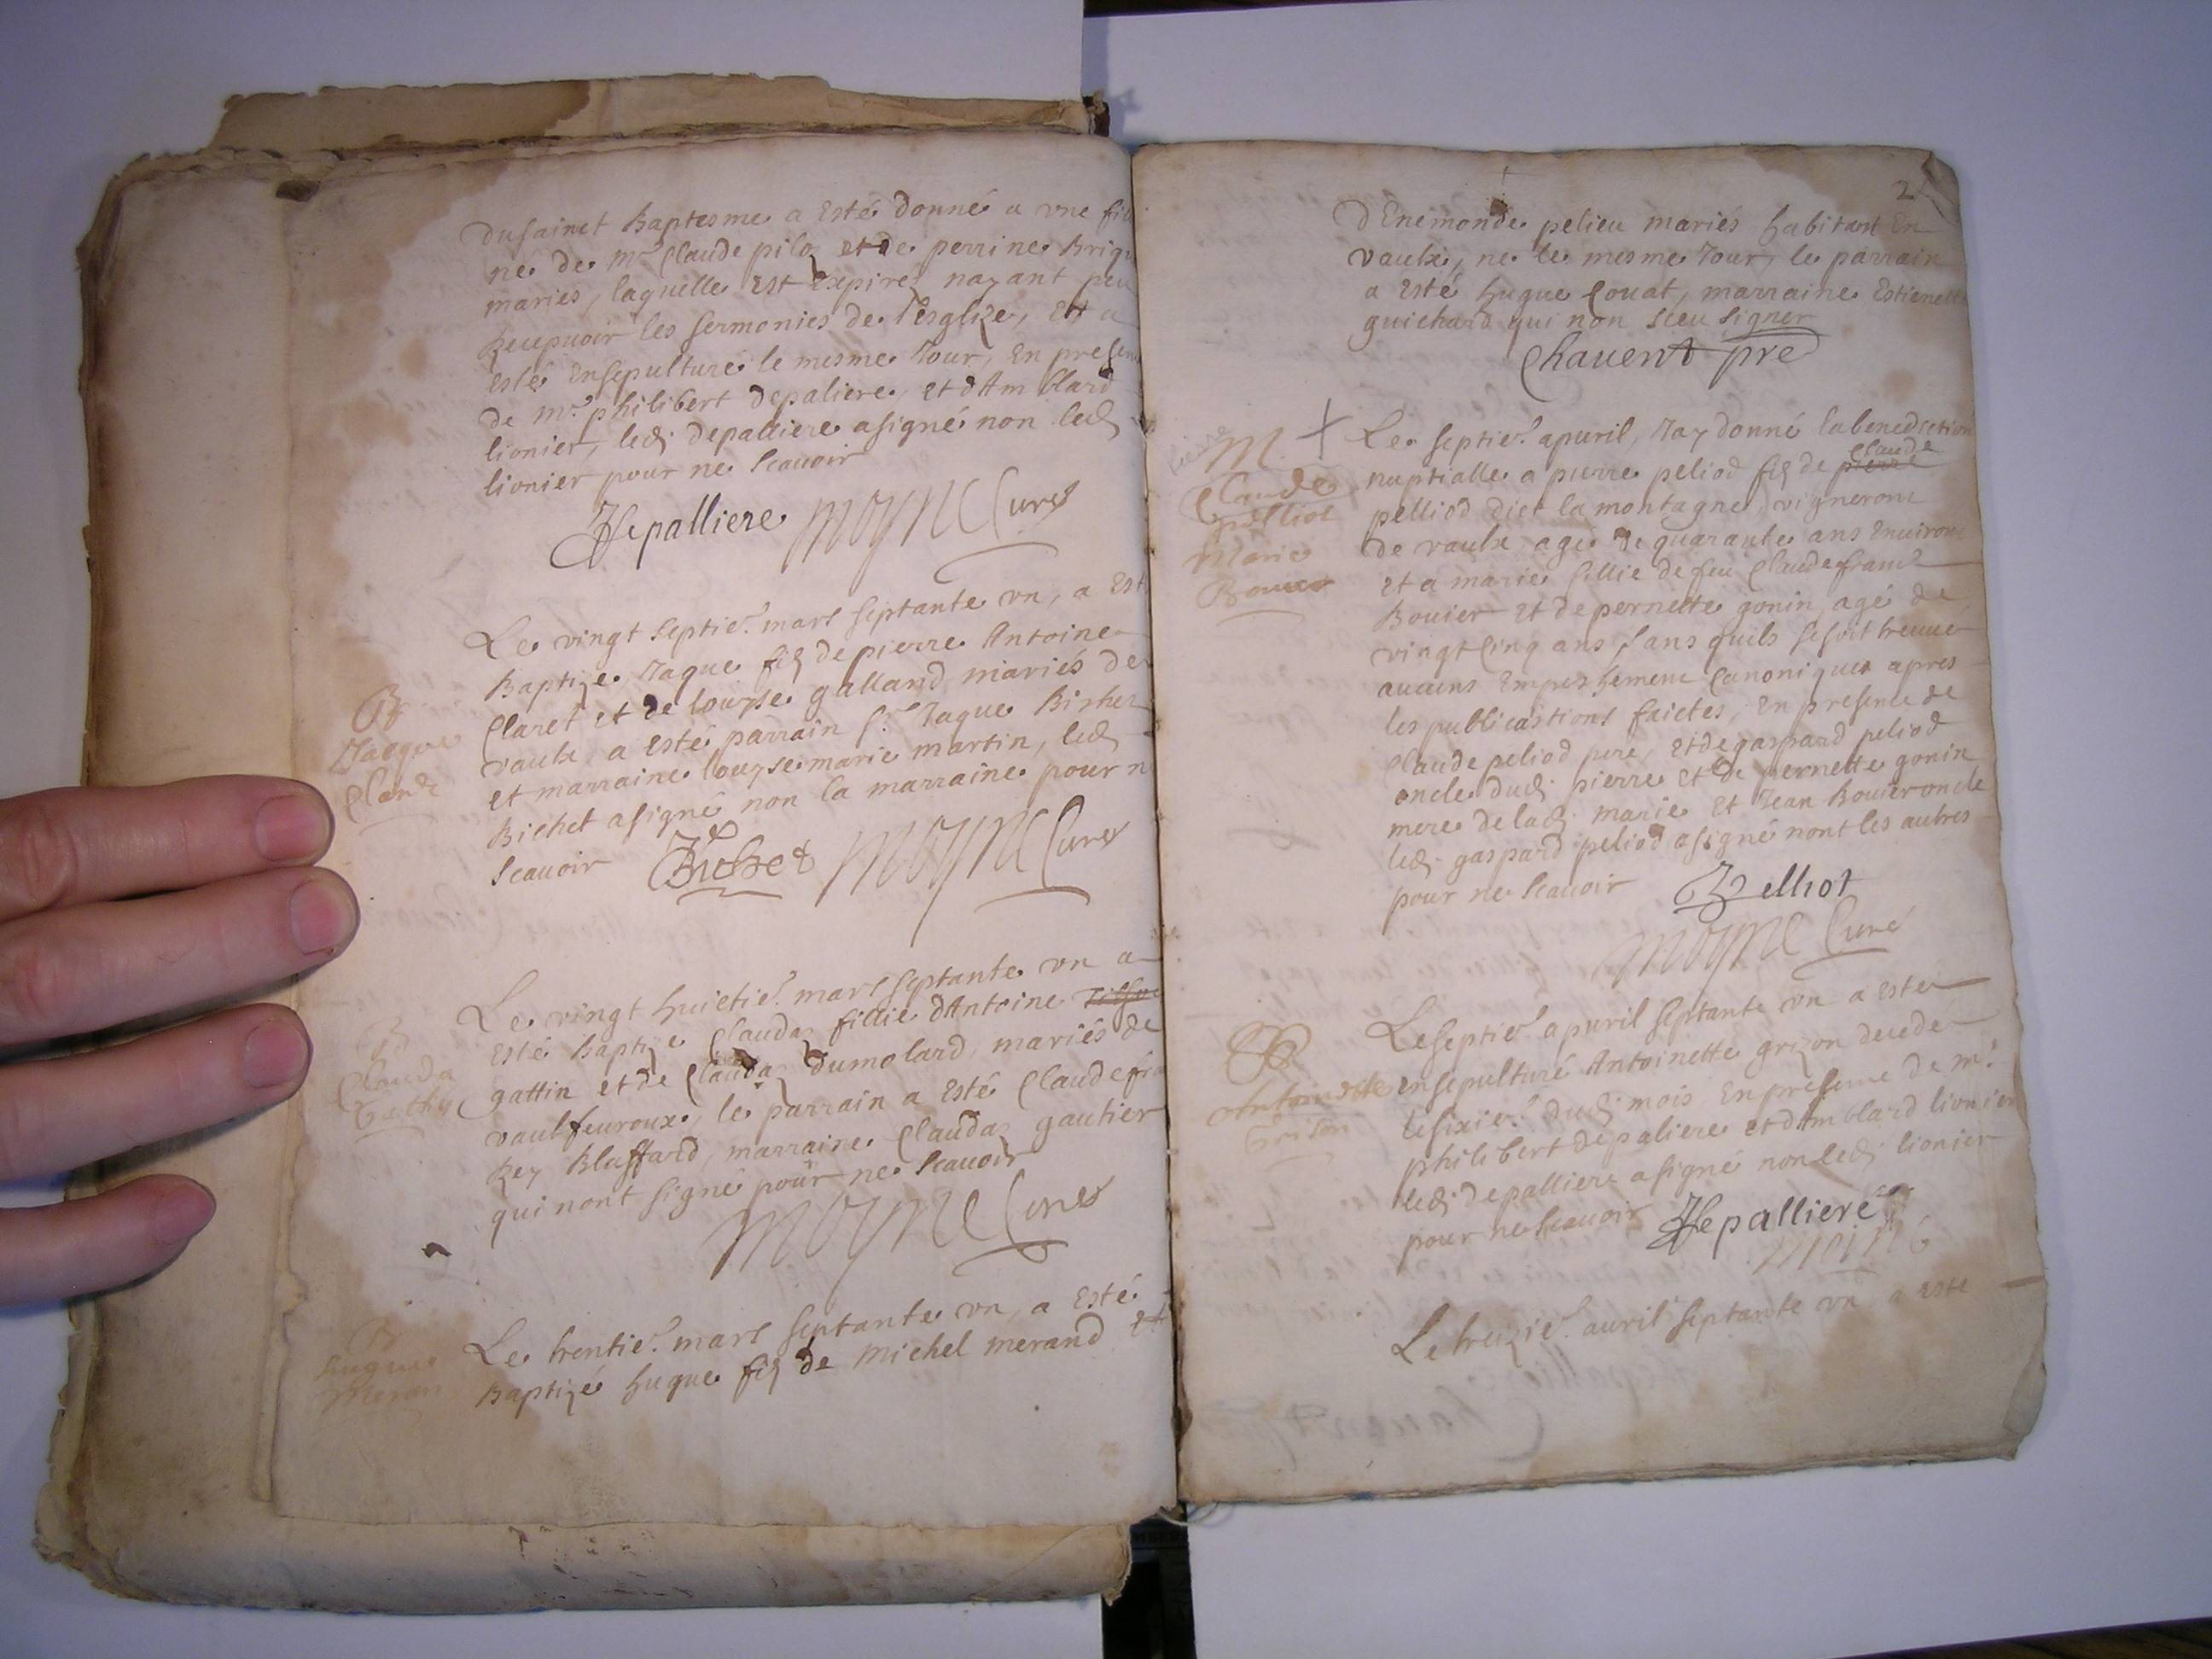 Du sainct Baptesme a Esté donné a vne fil
né de mr Claude pilo et de perrine Brig
mariés, laquelle est Expire nayant peu
Recepuoir les sermonies de lesglize, Et a
esté Ensepulturé le mesme Jour, En presen
de mr philibert depaliere, et dAmblard
lionier, led depalliere a signé non led
lionier pour ne scauoir
Depalliere moyne Curé
Le vingt septie. mars septante vn, a Est
Baptize Jaque fils de pierre Antoine
Claret et de louyse galland mariés de
vaulx a esté parrain Sr Jaque Bichet
et marraine louyse marie martin, led
Bichet a signé non la marraine pour n
scauoir Bichet moyne Curé
B
Jacque
Claret
Le vingt huictie. mars septante vn a
esté Baptize Clauda fillie dAntoine
gattin et de Clauda dumolard, mariés de
vaulfeuroux, le parrain a esté Claude fra
Rey Blaffard, marraine Clauda gautier
qui nont signé pour ne scauoir
moyne Curé
B
Clauda
Le trentie. mars septante vn, a esté
Baptizé hugue fils de michel merand et
B
hugue
meran
2
dEnemonde pelieu mariés habitant En
vaulx, ne le mesme Jour, le parrain
a Esté hugue Couat, marraine Estienette
guichard qui non sceu signer
Chauent pre
Le septie. apuril, Jay donné la benediction
nuptialle a pierre peliod fils de pierre claude
pelliod dict la montagne, vigneront
de vaulx agé de quarante ans Enuiron
et a marie fillie de feu Claude franc
Bouier et de pernette gonin, agé de
vingt Cinq ans, sans quils se soit treuué
aucuns Empeschement Canoniques apres
les publications faictes, En presence de
Claude peliod pere, et de gaspard peliod
oncle dud pierre et de pernette gonin
mere de lad marie et Jean Bouier oncle
led gaspard peliod a signé nont les autres
pour ne scauoir Pelliot
moyne Curé
pierre
M. +
Claude
pelliot
Marie
Bouier
Le septie apuril septante vn a esté
ensepulturé Antoinette grizon decedé
le sixie. dud mois En presence de mr
philibert depaliere et dAmblard lionier
led depalliere a signé non led lionier
pour ne scauoir Depalliere
moyne
Antoinette
Grison
Le treizie. auril septante vn a esté